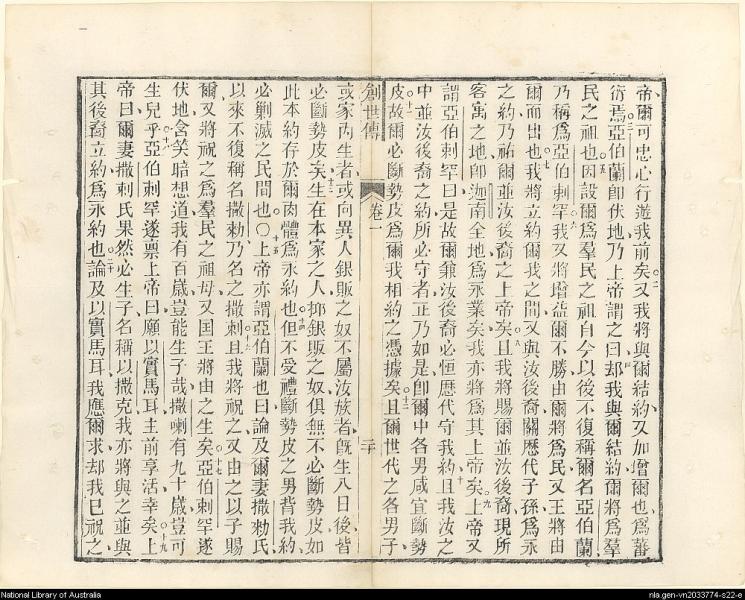 帝爾可忠心行遊我前矣又我將與爾結約又加增爾也爲蕃
衍焉亞伯蘭卽伏地乃上帝謂之曰却我與爾結約爾將爲羣
民之祖也因設爾爲羣民之祖自今以後不復稱爾名亞伯蘭
乃稱爲亞伯剌罕我又將增益爾不勝由爾將爲民又王將由
爾而出也我將立約爾我之間又與汝後裔關歷代子孫爲永
之約乃祐爾並汝後裔之上帝矣且我將賜爾並汝後裔現所
客寓之地卽迦南全地爲永業矣我亦將爲其上帝矣上帝又
謂亞伯剌罕曰是故爾兼汝後裔必恒歷代守我約且我汝之
中並汝後裔之約所必守者正乃如是卽爾中各男咸宜斷勢
皮故爾必斷勢皮爲爾我相約之憑據矣且爾世代之各男子
創世傳 卷一 二十
或家內生者或向異人銀販之奴不屬汝族者旣生八日後皆
必斷勢皮矣生在本家之人抑銀販之奴俱無不必斷勢皮如
此本約存於爾肉體爲永約也但不受禮斷勢皮之男背我約
必剿滅之民間也○上帝亦謂亞伯蘭也曰論及爾妻撒勑氏
以來不復稱名撒勑乃名之撒剌且我將祝之又由之以子賜
爾又將祝之爲羣民之祖母又国王將由之生矣亞伯剌罕遂
伏地含笑暗想道我有百歲豈能生子哉撒喇有九十歲豈可
生兒乎亞伯剌罕遂禀上帝曰願以實馬耳主前享活幸矣上
帝曰爾妻撒剌氏果然必生子名稱以撒克我亦將與之並與
其後裔立約爲永約也論及以實馬耳我應爾求却我已祝之
National Library of Australia
nla.gen-vn2033774-s22-e